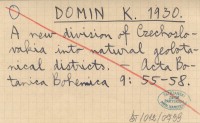 DOMIN K. 1930.
A new division of Czechoslo-
vakia into natural geobota-
nical districts. – Acta Bo-
tanica Bohemica 9: 55–58.